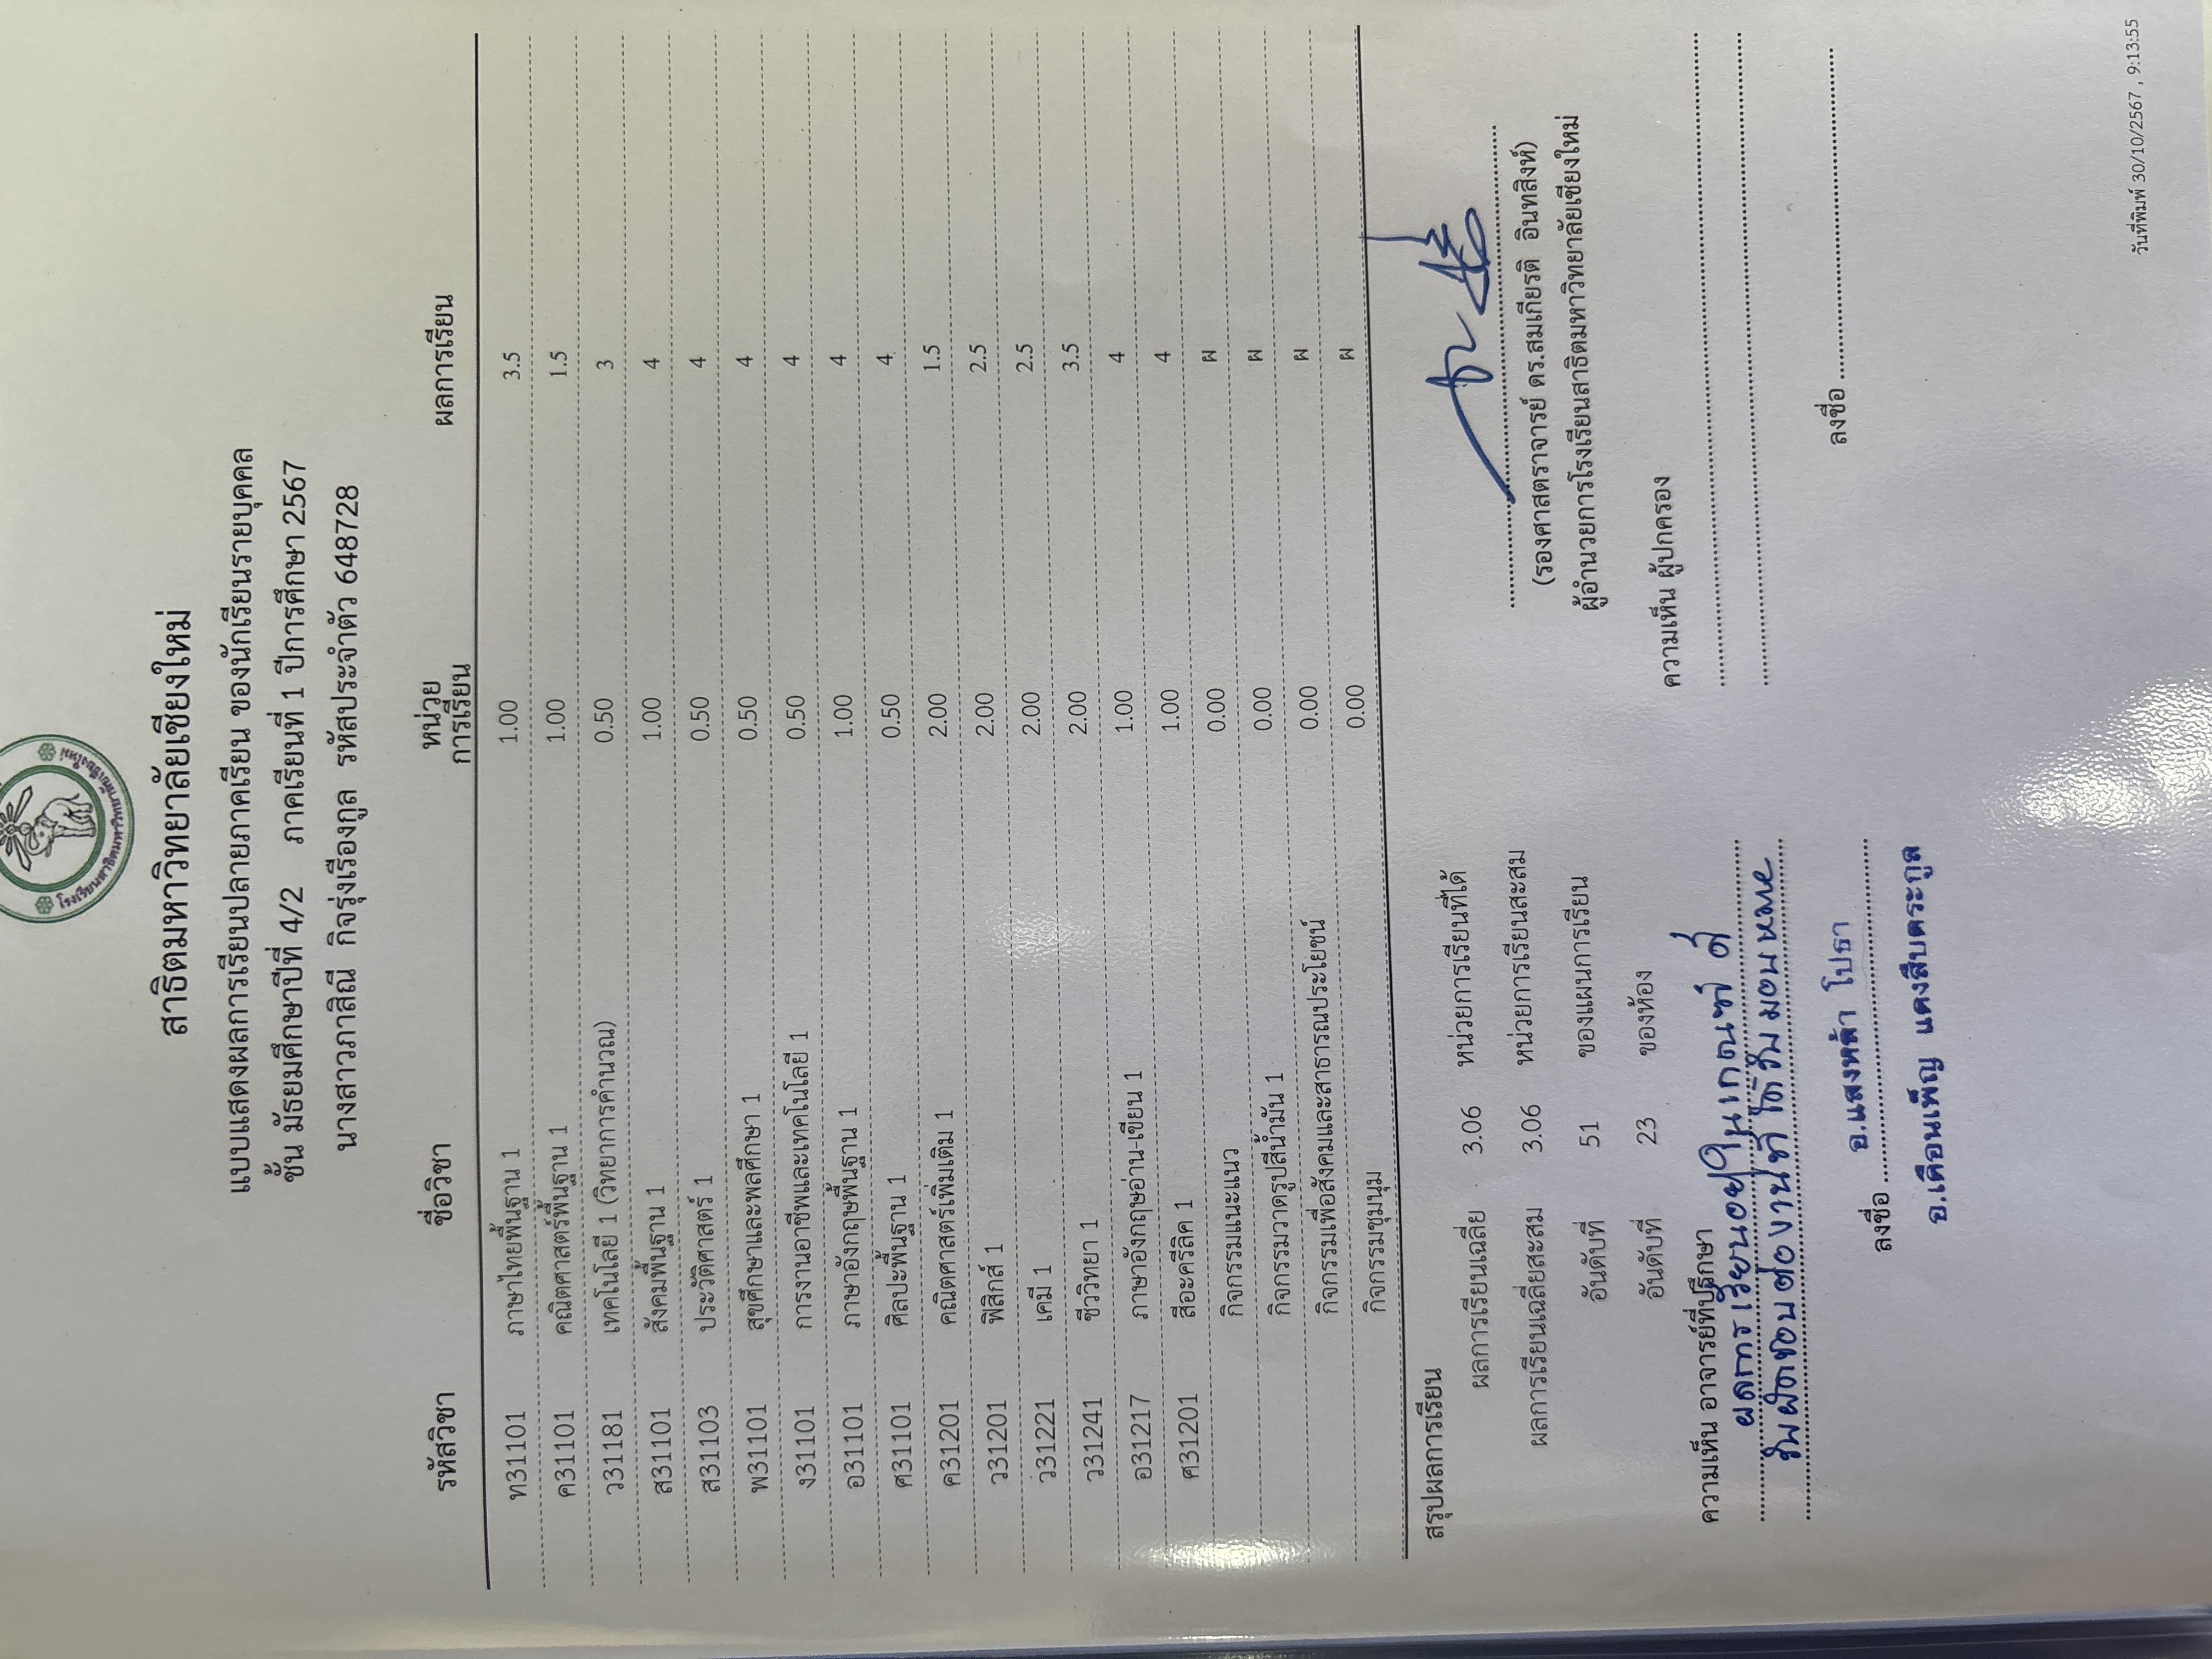 โรงเรียนสาธิตมหาวิทยาลัยเชียงใหม่
สาธิตมหาวิทยาลัยเชียงใหม่
แบบแสดงผลการเรียนปลายภาคเรียน ของนักเรียนรายบุคคล
ชั้น มัธยมศึกษาปีที่ 4/2 ภาคเรียนที่ 1 ปีการศึกษา 2567
นางสาวภาสิณี กิจรุ่งเรืองกูล รหัสประจำตัว 648728
รหัสวิชา ชื่อวิชา หน่วยการเรียน ผลการเรียน
ท31101 ภาษาไทยพื้นฐาน 1 1.00 3.5
ค31101 คณิตศาสตร์พื้นฐาน 1 1.00 1.5
ว31181 เทคโนโลยี 1 (วิทยาการคำนวณ) 0.50 3
ส31101 สังคมพื้นฐาน 1 1.00 4
ส31103 ประวัติศาสตร์ 1 0.50 4
พ31101 สุขศึกษาและพลศึกษา 1 0.50 4
ง31101 การงานอาชีพและเทคโนโลยี 1 0.50 4
อ31101 ภาษาอังกฤษพื้นฐาน 1 1.00 4
ศ31101 ศิลปะพื้นฐาน 1 0.50 4
ค31201 คณิตศาสตร์เพิ่มเติม 1 2.00 1.5
ว31201 ฟิสิกส์ 1 2.00 2.5
ว31221 เคมี 1 2.00 2.5
ว31241 ชีววิทยา 1 2.00 3.5
อ31217 ภาษาอังกฤษอ่าน-เขียน 1 1.00 4
ศ31201 สีอะครีลิค 1 1.00 4
กิจกรรมแนะแนว 0.00 ผ
กิจกรรมวาดรูปสีน้ำมัน 1 0.00 ผ
กิจกรรมเพื่อสังคมและสาธารณประโยชน์ 0.00 ผ
กิจกรรมชุมนุม 0.00 ผ
สรุปผลการเรียน
ผลการเรียนเฉลี่ย 3.06 หน่วยการเรียนที่ได้
ผลการเรียนเฉลี่ยสะสม 3.06 หน่วยการเรียนสะสม
อันดับที่ 51 ของแผนการเรียน
อันดับที่ 23 ของห้อง
(รองศาสตราจารย์ ดร.สมเกียรติ อินทสิงห์)
ผู้อำนวยการโรงเรียนสาธิตมหาวิทยาลัยเชียงใหม่
ความเห็น อาจารย์ที่ปรึกษา
ผลการเรียนอยู่ในเกณฑ์ ดี
รับผิดชอบต่องานที่ได้รับมอบหมาย
ลงชื่อ อ.แสงหล้า โปธา
อ.เดือนเพ็ญ แดงสืบตระกูล
ความเห็น ผู้ปกครอง
ลงชื่อ
วันที่พิมพ์ 30/10/2567 , 9:13:55